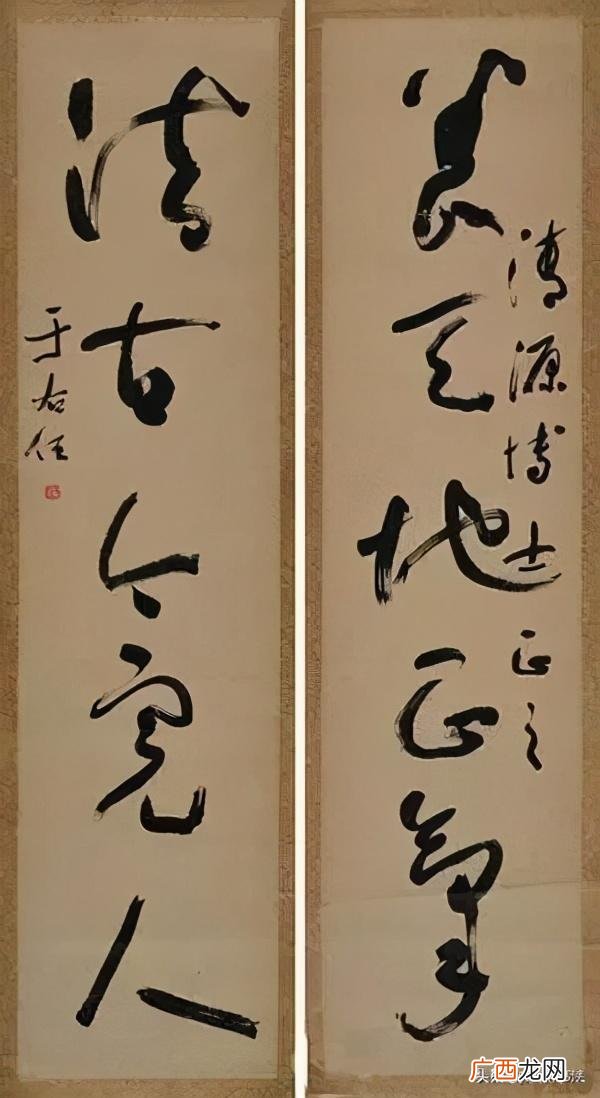 養天地正氣
源博士正之
法古今完人
于右任
广西龙网